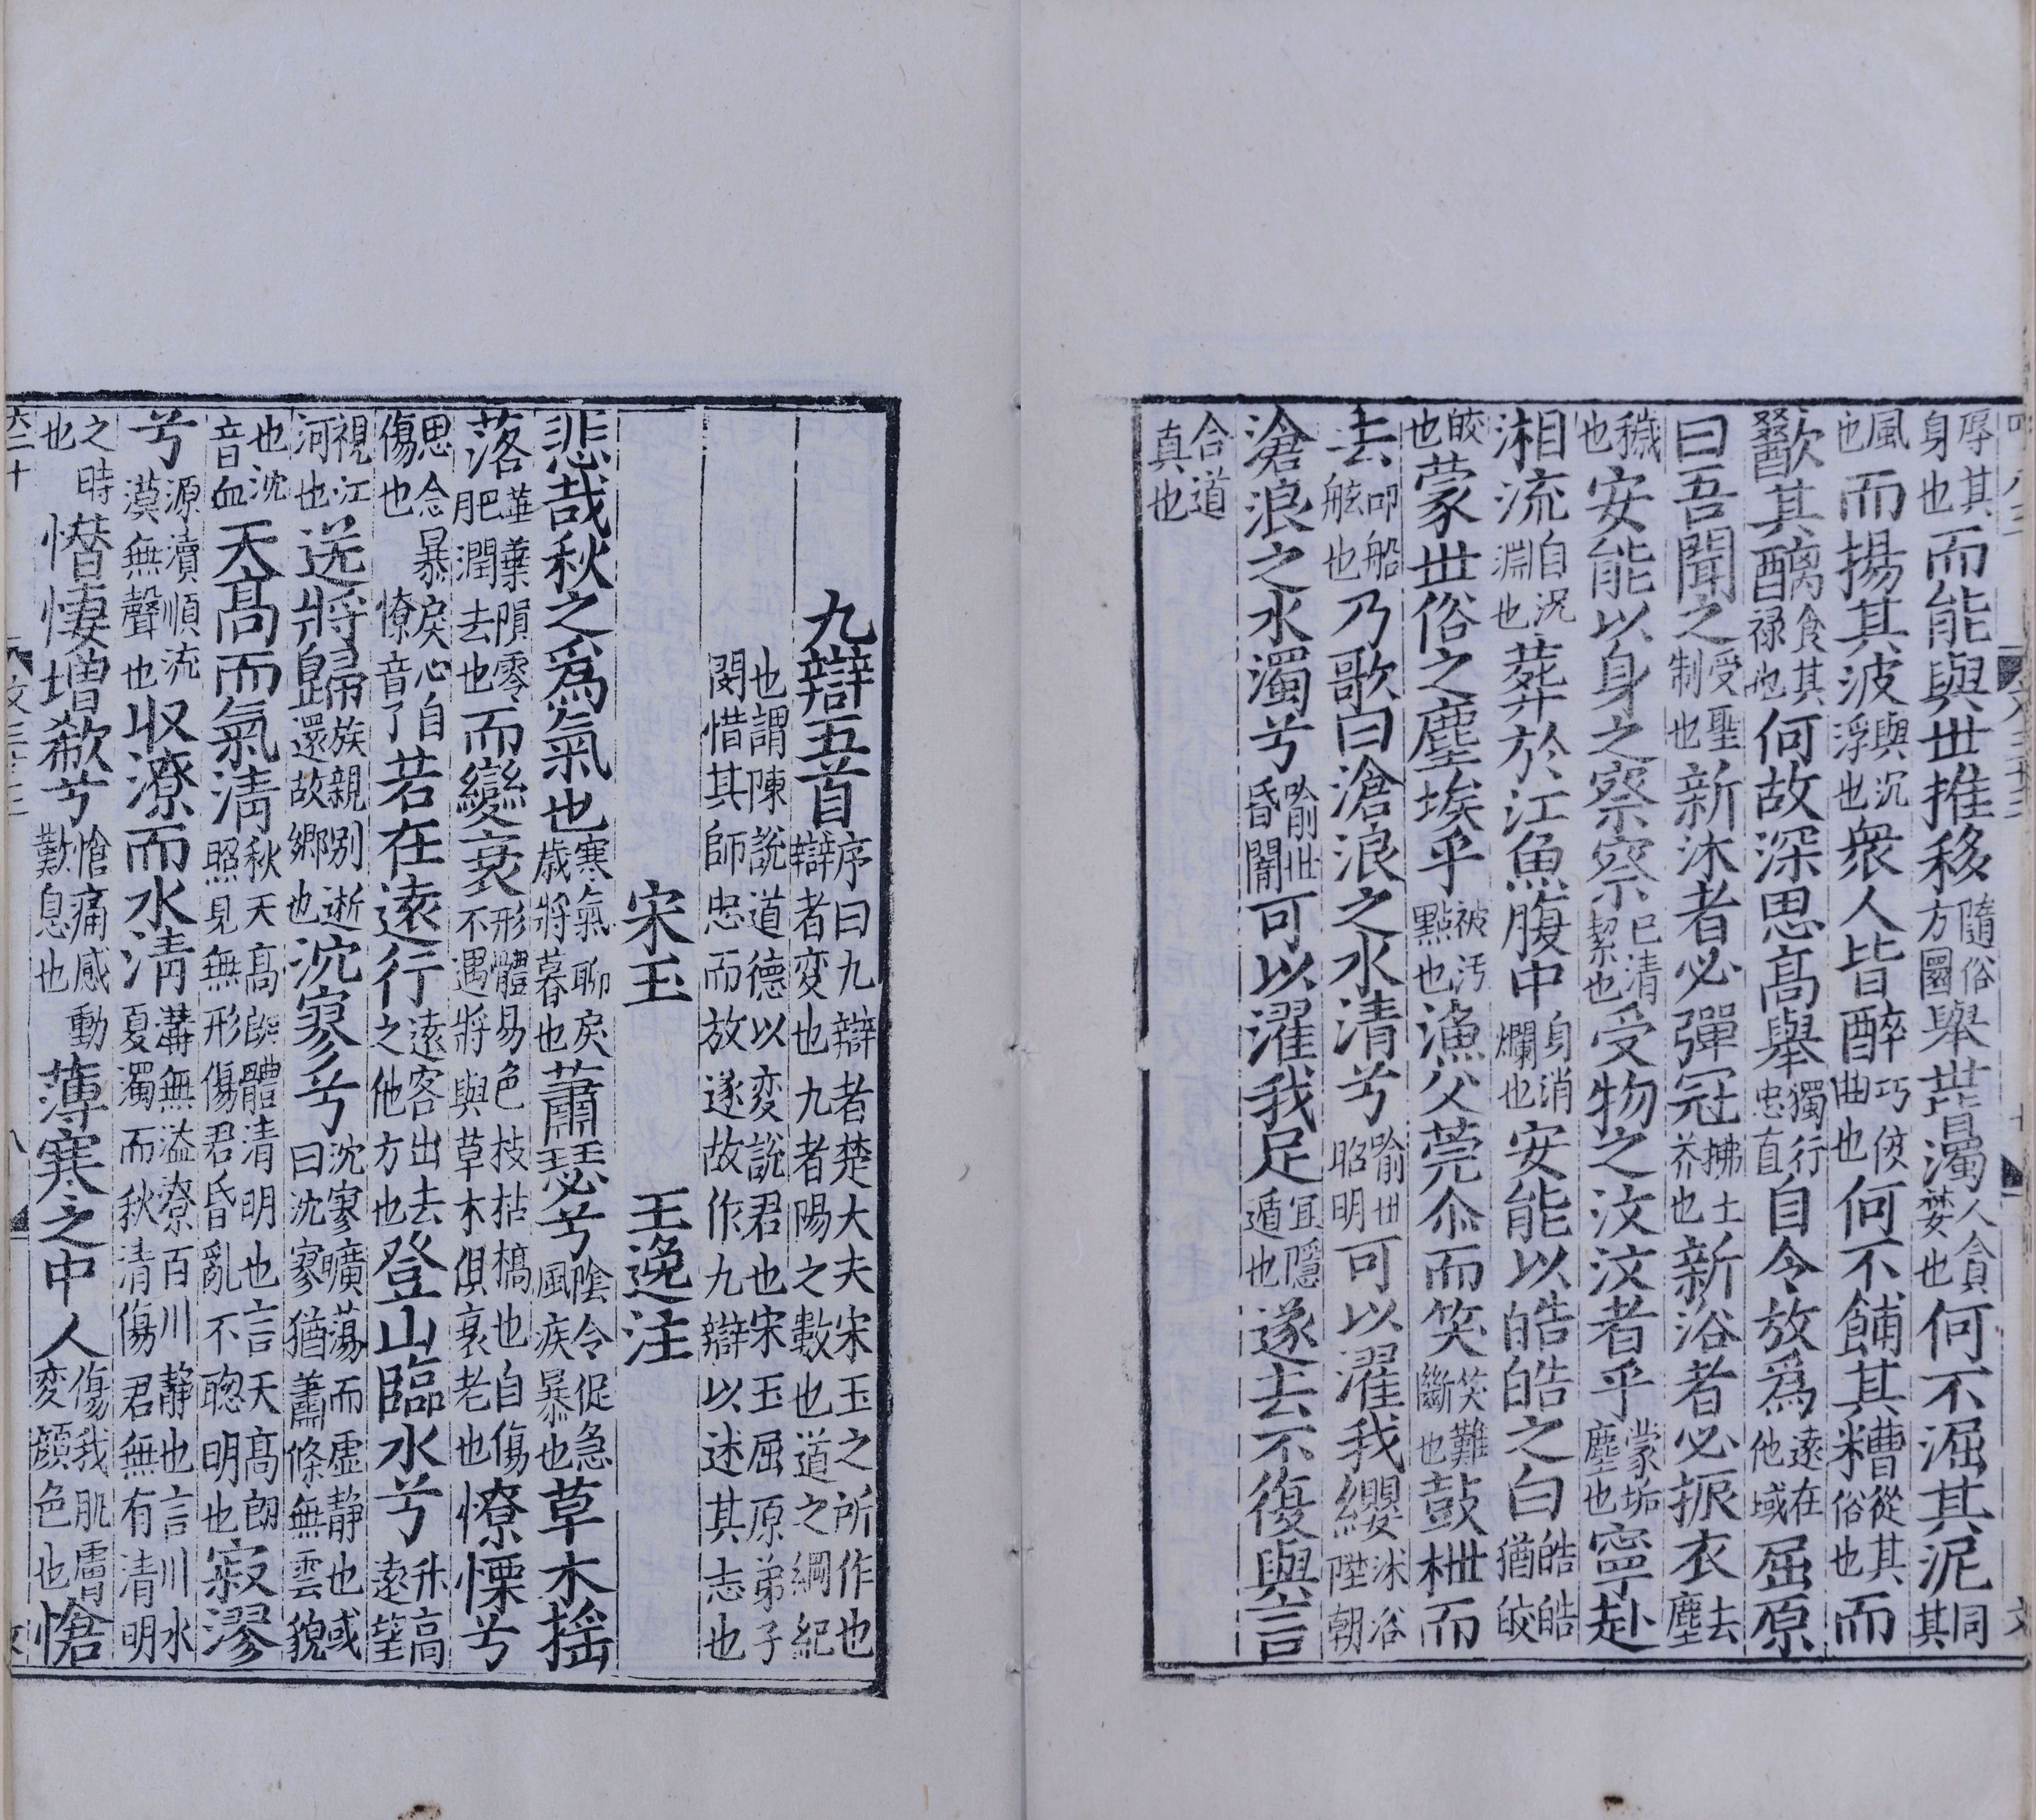 辱其身也而能與世推移隨俗方圓舉世皆濁人貪婪也何不淈其泥同其
風也而揚其波與沉浮也衆人皆醉巧佞曲也何不餔其糟從其俗也而
歠其醨食其禄也何故深思髙舉獨行忠直自令放爲遠在他域屈原
曰吾聞之受聖制也新沐者必彈冠拂土芥也新浴者必振衣去塵
穢也安能以身之察察已清絜也受物之汶汶者乎蒙垢塵也寧赴
湘流自沉淵也葬於江魚腹中身消爛也安能以皓皓之白皓皓猶皎
皎也蒙世俗之塵埃乎被汚點也漁父莞尒而笑笑難斷也鼓枻而
去叩船舷也乃歌曰滄浪之水清兮喻世昭明可以濯我纓沐浴陞朝
滄浪之水濁兮喻世昏闇可以濯我足宜隱遁也遂去不復與言
合道真也
九辯五首序曰九辯者楚大夫宋玉之所作也辯者変也九者陽之數也道之綱紀
也謂陳說道德以変說君也宋玉屈原弟子閔惜其師忠而放遂故作九辯以述其志也
宋玉 王逸注
悲哉秋之爲氣也寒氣聊戾歳將暮也蕭瑟兮陰令促急風疾暴也草木揺
落華葉隕零肥潤去也而變衰形體易色枝枯槁也自傷不遇將與草木俱衰老也憭慄兮
思念暴戾心自傷也憭音了若在遠行遠客出去之他方也登山臨水兮升高遠望
視江河也送將歸族親別逝還故鄉也泬寥兮泬寥曠蕩而虛静也或曰泬寥猶蕭條無雲貌
也泬音血天髙而氣清秋天髙朗體清明也言天髙朗照見無形傷君昏亂不聦明也寂漻
兮源瀆順流漠無聲也収潦而水清溝無溢潦百川静也言川水夏濁而秋清傷君無有清明
之時也憯悽増欷兮愴痛感動歎息也薄寒之中人傷我肌膚変顔色也愴